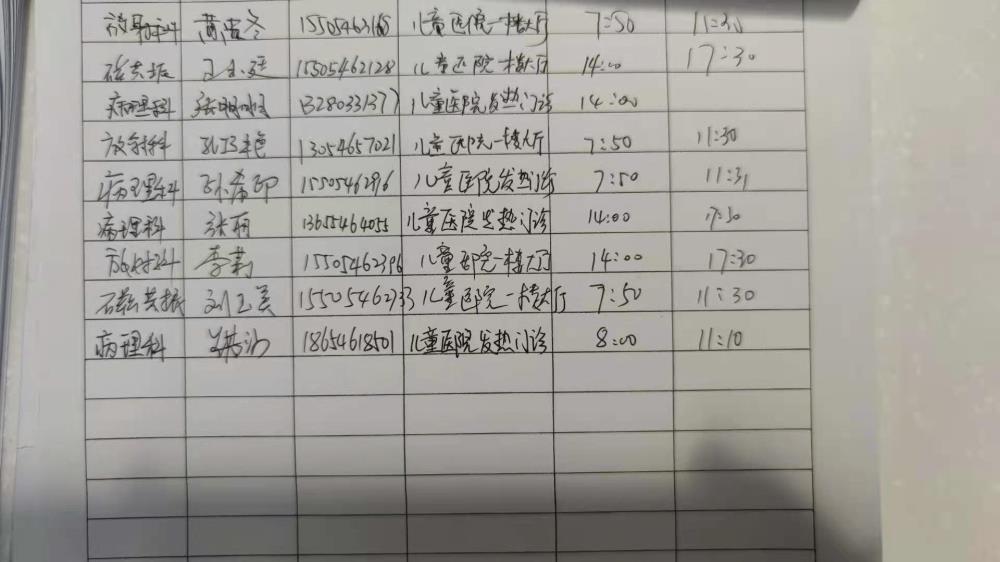 放射科 15505463160 儿童医院一楼大厅 7:50 11:30
磁共振 15505462128 儿童医院一楼大厅 14:00 17:30
病理科 张明明 13280331377 儿童医院发热门诊 14:00
放射科 13054657021 儿童医院一楼大厅 7:50 11:30
病理科 孙希印 1550546296 儿童医院发热门诊 7:50 11:31
病理科 张丽 13655464055 儿童医院发热门诊 14:00 17:30
放射科 李莉 15505462396 儿童医院一楼大厅 14:00 17:30
磁共振 刘玉美 15505462333 儿童医院一楼大厅 7:50 11:30
病理科 18654618501 儿童医院发热门诊 8:00 11:10